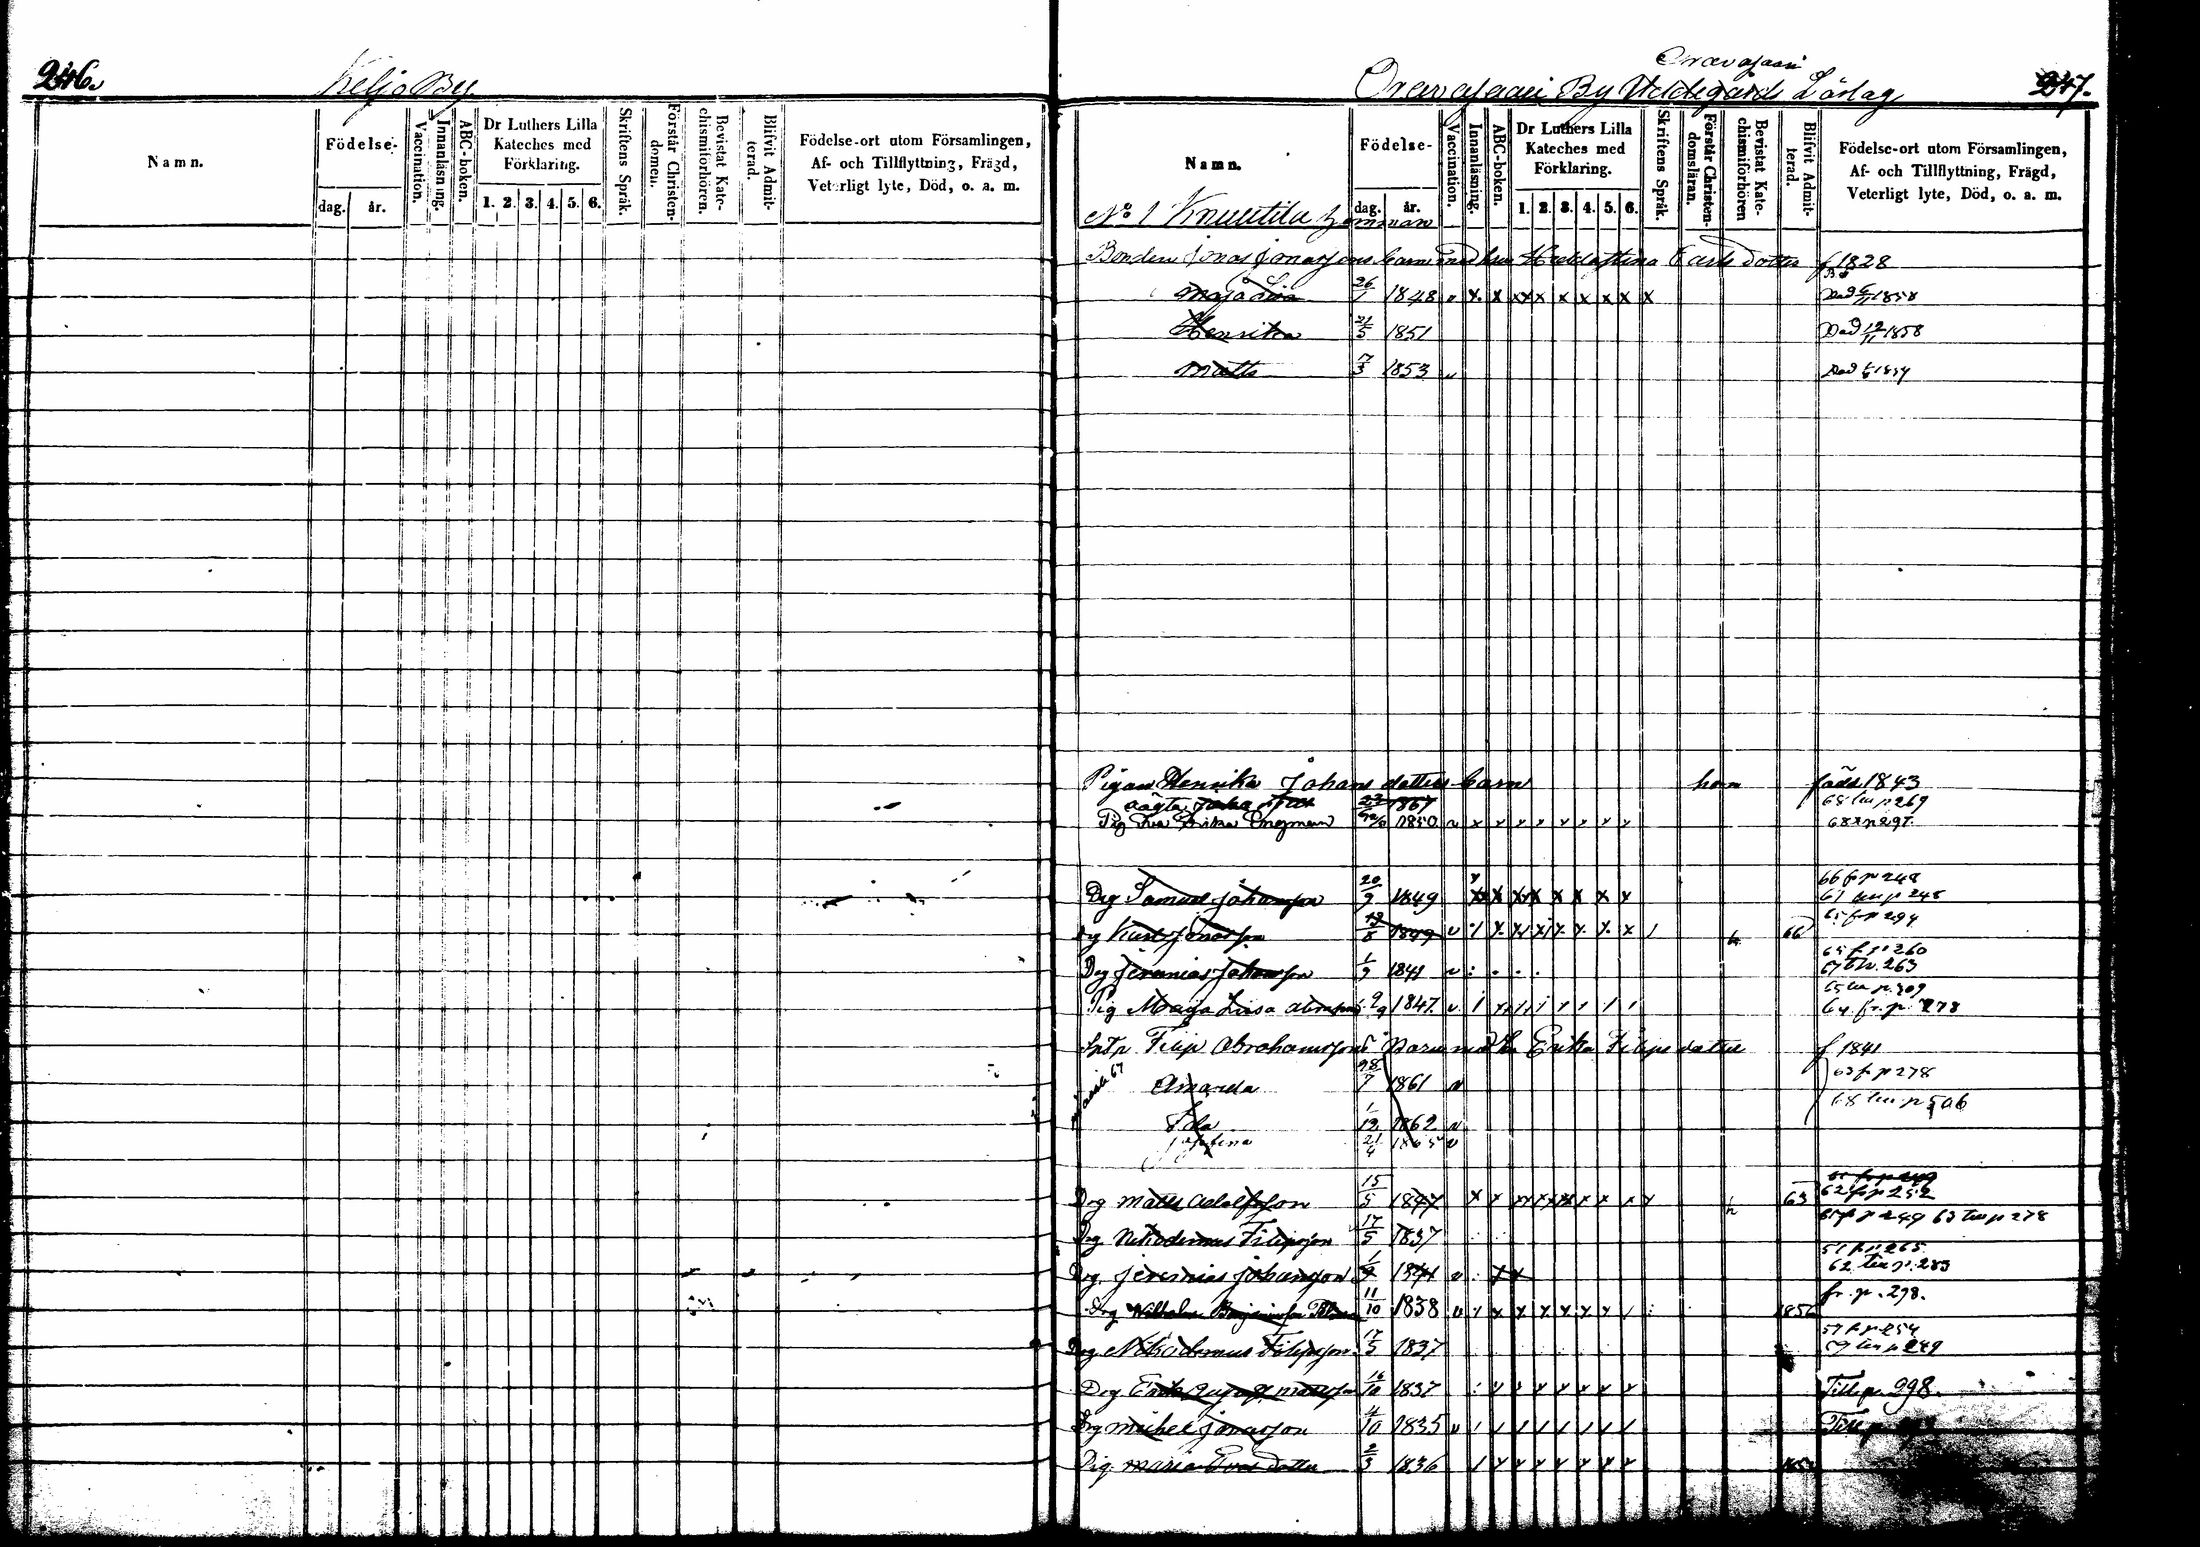 246.
Keljo By
Namn.
Födelse-
dag. år.
Vaccination.
Innanläsning.
ABC-boken.
Dr Luthers Lilla Kateches med Förklaring.
1. 2. 3. 4. 5. 6.
Skriftens Språk.
Förstår Christendomen.
Bevistat Katechismiförhören.
Blifvit Admitterad.
Födelse-ort utom Församlingen, Af- och Tillflyttning, Frägd, Veterligt lyte, Död, o. a. m.
Oravasaari
Oravasaari By Läslag
247.
Namn.
Födelse-
dag. år.
Vaccination.
Innanläsning.
ABC-boken.
Dr Luthers Lilla Kateches med Förklaring.
1. 2. 3. 4. 5. 6.
Skriftens Språk.
Förstår Christendomsläran.
Bevistat Katechismiförhören
Blifvit Admitterad.
Födelse-ort utom Församlingen, Af- och Tillflyttning, Frägd, Veterligt lyte, Död, o. a. m.
No 1 Knuutila hemman
Bonden Jonas Jonassons barn med hu Hedda Stina Carls dotter f 1828
Maja Lisa 26/1 1848 v x x x x x x x x x x Död 1858
Henrika 21/5 1851 Död 12/11 1858
Matts 7/3 1853 v Död 1859
Pigan Henrika Johans dotters barn född 1843
oägta 1867 68 till p 269
Pig Eva Erika Engman 1850 v x x x x x x x x 68 p 297.
66 f p 248
Drg Samuel Johansson 20/9 1849 x x x x x x x x 67 till p 248
65 f p 294
Drg Karl Jonasson 19/8 1849 v 1 x x x x x x x 1 h 66
65 f p 260
Drg Jeremias Johansson 1/9 1841 v 67 till p. 263
Pig Maija Liisa 1847 v 64. fr. p. 278
Filip Abrahamsson Erika Filips dotter f 1841
Amanda 28/7 1861 v 63 f p 278
68 till p 506
Ida 1/12 1862 v
Josefina 21/4 1865 v
62 f p 252
Drg Matts Adolfsson 15/5 1847 x x x x x x x x x x h 63
p 249 63 till p 278
Drg Nikodemus Filipsson 17/5 1837
p 265
Drg. Jeremias Johansson 1/9 1841 v x x 62 till p. 283
fr. p. 298.
Drg Wilhelm Benjaminsson 11/10 1838 v x x x x x x x 1856
57 f p 254
Drg Nikodemus Filipsson 17/5 1837 59 till p 249
Drg Erik Matsson 16/10 1837 x x x x x x x Till p. 298.
Drg Michel Jonasson 4/10 1835 v 1 1 1 1 1 1 1 1 Till p
Pig. Maria dotter 2/3 1836 1 x x x x x x x